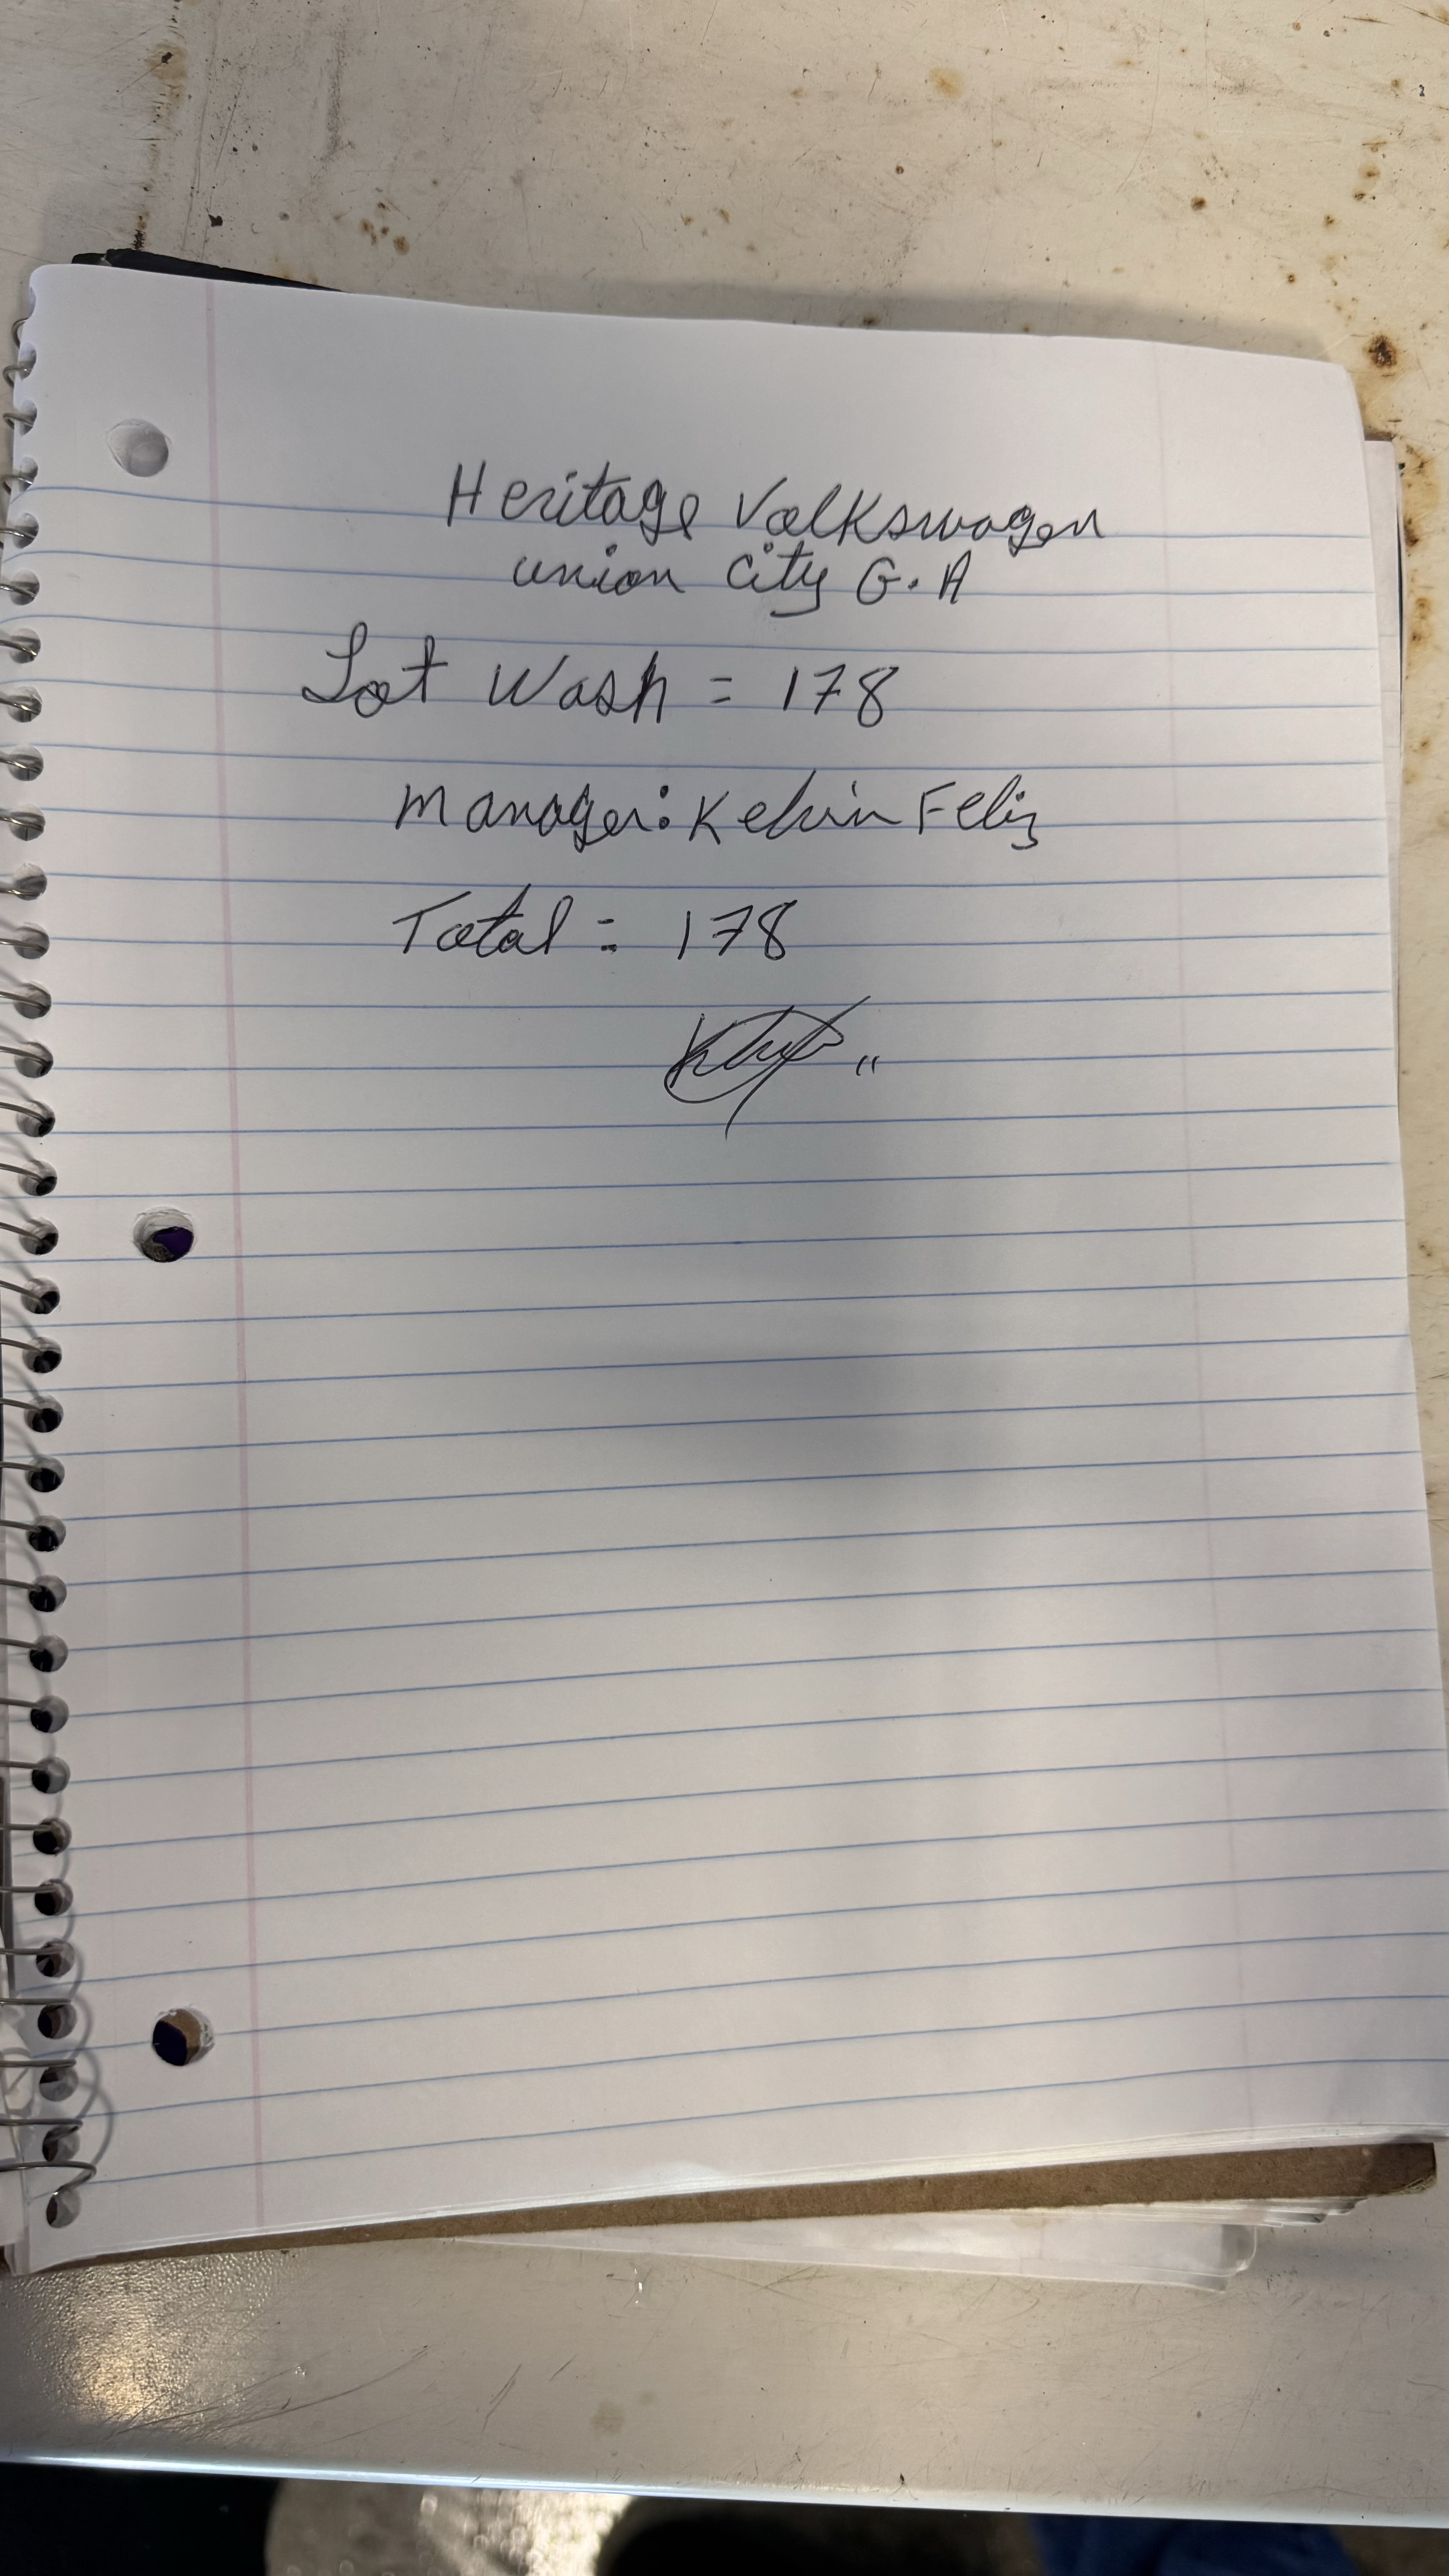 Heritage Volkswagen
union city G.A
Lot Wash = 178
Manager: Kelvin Feliz
Total = 178